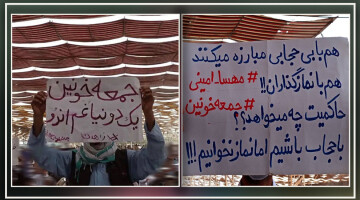 جمعه خونین
یک دنیا غم اندوه
هم با بی حجابی مبارزه میکنند
هم با نمازگذاران!!
#مهسا_امینی
حاکمیت چه میخواهد؟؟
#جمعه_خونین
با حجاب باشیم اما نماز نخوانیم!!!